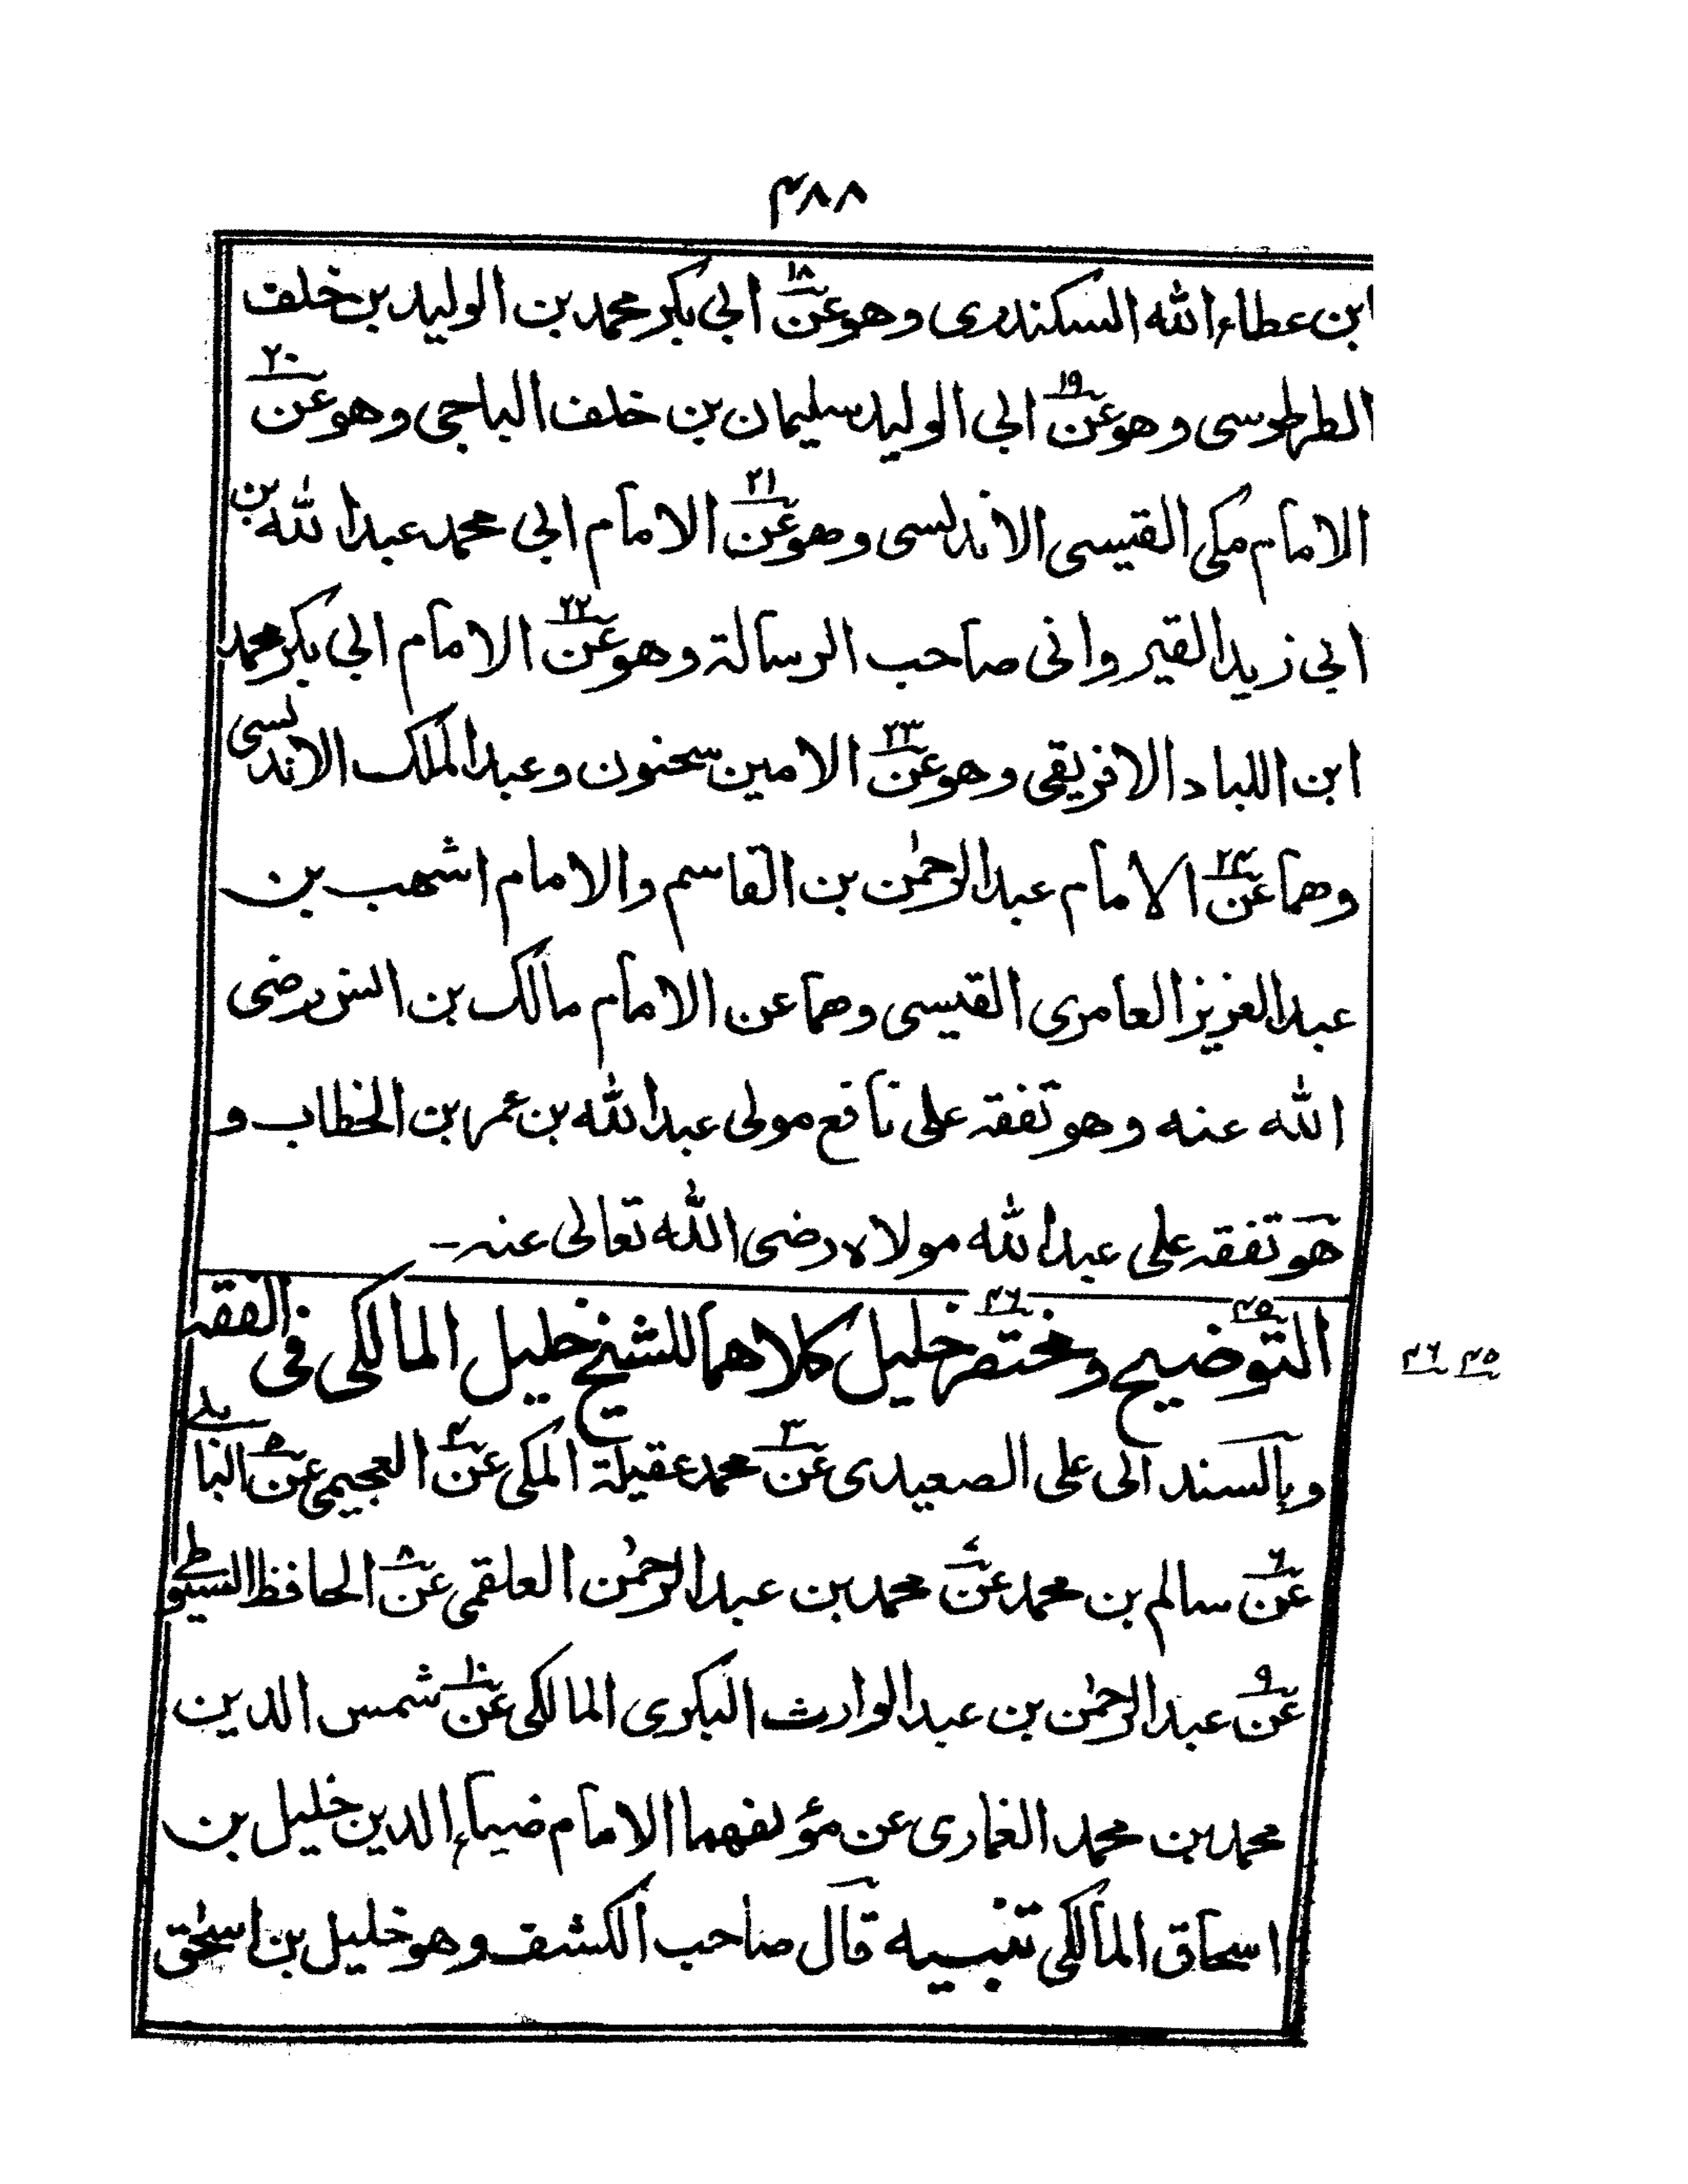 ۴۸۸
ابن عطاء الله السكندرى وهو عن ۱۸ ابي بكر محمد بن الوليد بن خلف
الطرطوسى وهو عن ۱۹ ابي الوليد سليمان بن خلف الباجى وهو عن ۲۰
الامام مكى القيسى الاندلسى وهو عن ۲۱ الامام ابي محمد عبد الله بن
ابي زيد القيروانى صاحب الرسالة وهو عن ۲۲ الامام ابي بكر محمد
ابن اللباد الافريقى وهو عن ۲۳ الامين سحنون وعبد الملك الاندلسى
وهما عن ۲۴ الامام عبد الرحمٰن بن القاسم والامام اشهب بن
عبد العزيز العامرى القيسى وهما عن الامام مالك بن انس رضى
الله عنه وهو تفقه على نافع مولى عبد الله بن عمر بن الخطاب و
هو تفقه على عبد الله مولاه رضى الله تعالى عنه۔
التوضيح ۴۵ ومختصر خليل ۴۶ كلاهما للشيخ خليل المالكى فى الفقه
۴۵ ۴۶
وبالسند الى على الصعيدى عن ۳ محمد عقيلة المكى عن ۴ العجيمى عن ۵ البابلى
عن ۶ سالم بن محمد عن ۷ محمد بن عبد الرحمٰن العلقمى عن ۸ الحافظ السيوطى
عن ۹ عبد الرحمٰن بن عبد الوارث البكرى المالكى عن ۱۰ شمس الدين
محمد بن محمد الغمارى عن مؤلفهما الامام ضياء الدين خليل بن
اسحاق المالكى تنبيه قال صاحب الكشف وهو خليل بن اسحٰق